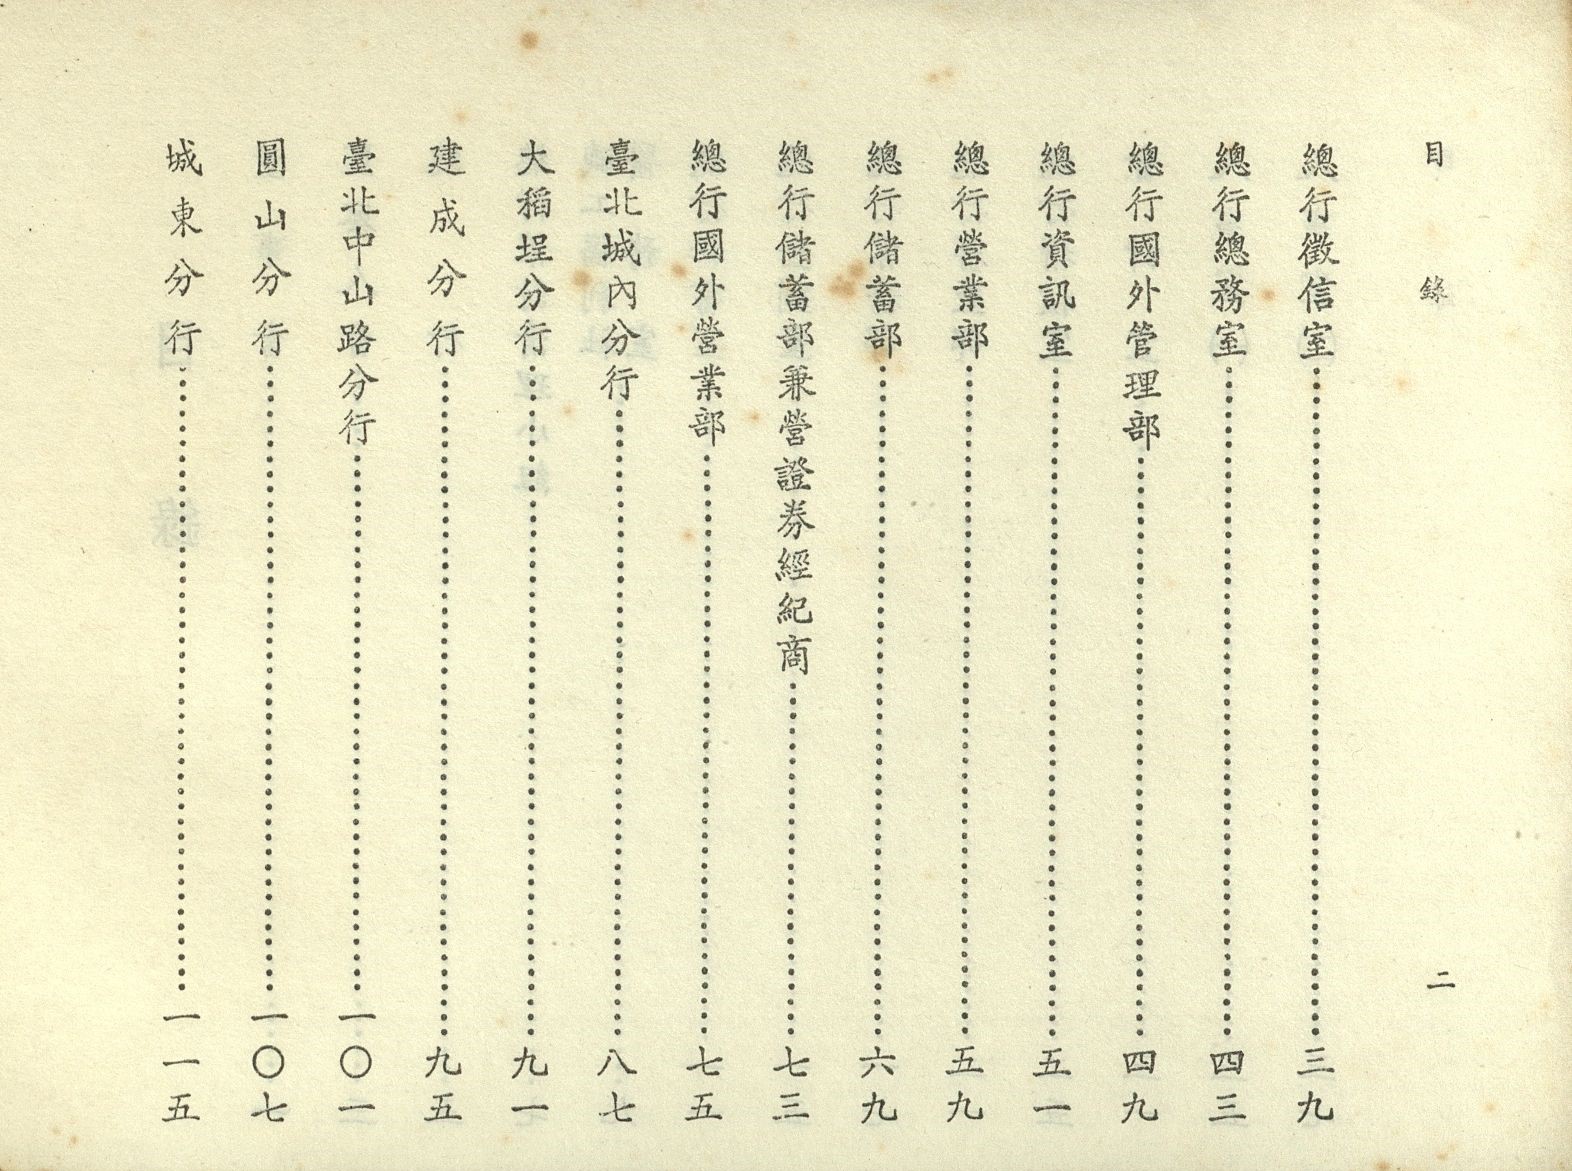 目錄 二
總行徵信室……三九
總行總務室……四三
總行國外管理部……四九
總行資訊室……五一
總行營業部……五九
總行儲蓄部……六九
總行儲蓄部兼營證券經紀商……七三
總行國外營業部……七五
臺北城內分行……八七
大稻埕分行……九一
建成分行……九五
臺北中山路分行……一〇一
圓山分行……一〇七
城東分行……一一五